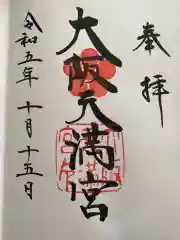 奉拝
大阪天満宮
令和五年十月十五日